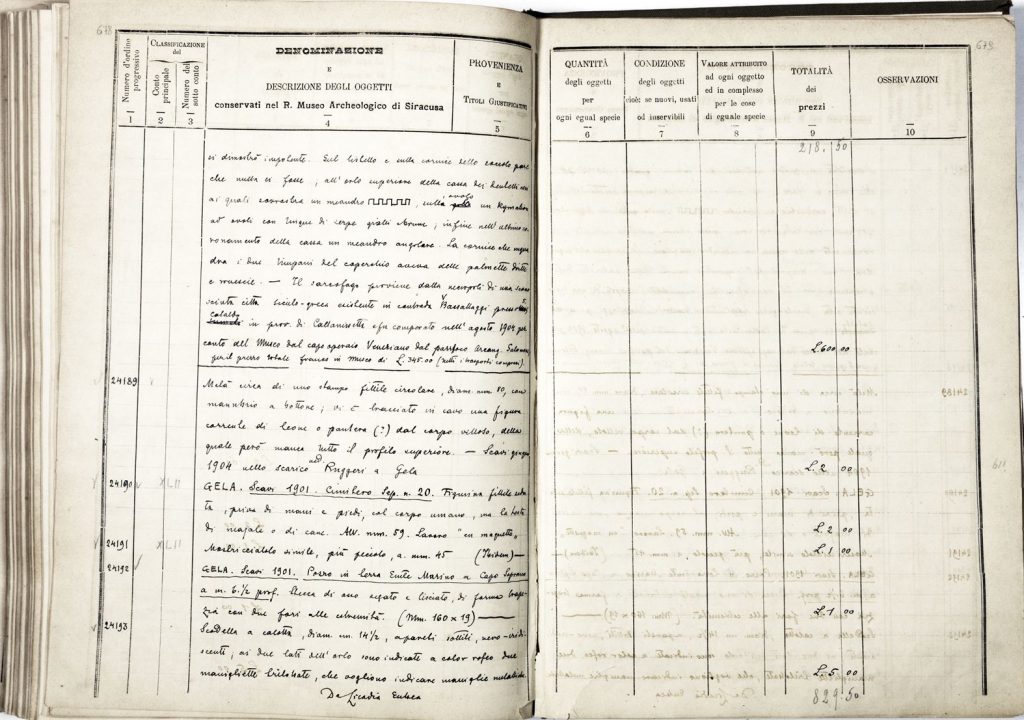 678
Numero d'ordine progressivo
Classificazione del
Conto principale
Numero del sotto conto
DENOMINAZIONE
E
DESCRIZIONE DEGLI OGGETTI
conservati nel R. Museo Archeologico di Siracusa
PROVENIENZA
E
Titoli Giustificativi
1
2
3
4
5
si dimostrò insolente. Sul listello e sulla cornice dello zoccolo pare
che nulla vi fosse, all'orlo superiore della cassa dei dentelli
ai quali sovrastra un meandro, sulla ovolo un Kymation
ad ovoli con lingue di serpe gialli brune; infine nell'ultimo co-
ronamento della cassa un meandro angolare. La cornice che
dra i due timpani del coperchio aveva delle palmette dritte
e rovescie. — Il sarcofago proviene dalla necropoli di una scono-
sciuta città siculo-greca esistente in contrada Vassallaggi presso S.
Cataldo in prov. di Caltanissetta e fu comperato nell'agosto 1904 per
conto del Museo dal capo operaio Veneziano dal parroco Arcang. Salomone
per il prezzo totale franco in museo di L. 345.00 (tutti i trasporti compresi).
24189
Metà circa di uno stampo fittile circolare, diam. mm. 80, con
manubrio a bottone; vi è tracciato in cavo una figura
corrente di leone o pantera (?) dal corpo velloso, della
quale però manca tutto il profilo superiore. — Scavi giugno
1904 nello scarico Ruggeri a Gela
24190
XLII
GELA. Scavi 1901. Cimitero Sep. n. 20. Figurina fittile
ta, priva di mani e piedi, col corpo umano, ma la testa
di majale o di cane. Alt. mm. 59. Lavoro
24191
XLII
Mostricciatolo simile, più piccolo, a. mm. 45 (Ibidem) —
24192
GELA. Scavi 1901. Pozzo in terra Emte Marino a Capo Soprano
a m. 6.½ prof. Stecca di osso segato e lisciato, di forma
con due fori alle estremità. (Mm. 160 x 19) —
24193
Scodella a calotta, diam. cm. 14½, a pareti sottili, nero-iride-
scente, ai due lati dell'orlo sono indicate a color roseo due
manigliette bilobate, che vogliono indicare maniglie metalliche.
Da Licodia Eubea
679
QUANTITÀ
degli oggetti
per
ogni egual specie
6
CONDIZIONE
degli oggetti
cioè: se nuovi, usati
od inservibili
7
Valore attribuito
ad ogni oggetto
ed in complesso
per le cose
di eguale specie
8
TOTALITÀ
dei
prezzi
9
OSSERVAZIONI
10
218. 50
L. 600 00
L. 2 00
L. 2 00
L. 1 00
L. 1 00
L. 5 00
829. 50